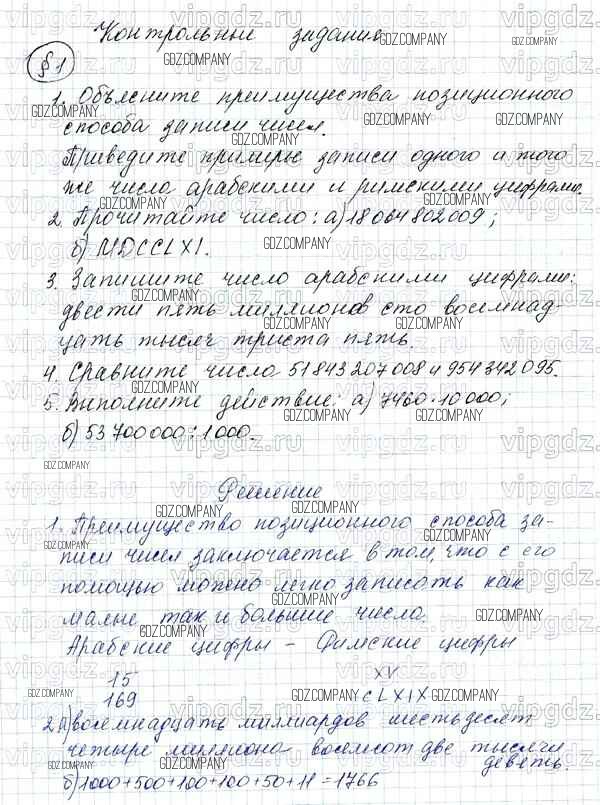 Контрольные задания
§1
1. Объясните преимущества позиционного
способа записи чисел.
Приведите примеры записи одного и того
же числа арабскими и римскими цифрами.
2. Прочитайте число: а) 18 064 802 009;
б) MDCCLXI.
3. Запишите число арабскими цифрами:
двести пять миллионов сто восемнад-
цать тысяч триста пять.
4. Сравните числа 51 843 207 008 и 954 342 095.
5. Выполните действие: а) 7460·10 000;
б) 53 700 000:1000.
Решение
1. Преимущество позиционного способа за-
писи чисел заключается в том, что с его
помощью можно легко записать как
малые так и большие числа.
Арабские цифры – Римские цифры
15 XV
169 CLXIX
2. а) восемнадцать миллиардов шестьдесят
четыре миллиона восемсот две тысячи
девять.
б) 1000+500+100+100+50+11=1766
GDZ.COMPANY
vipgdz.ru